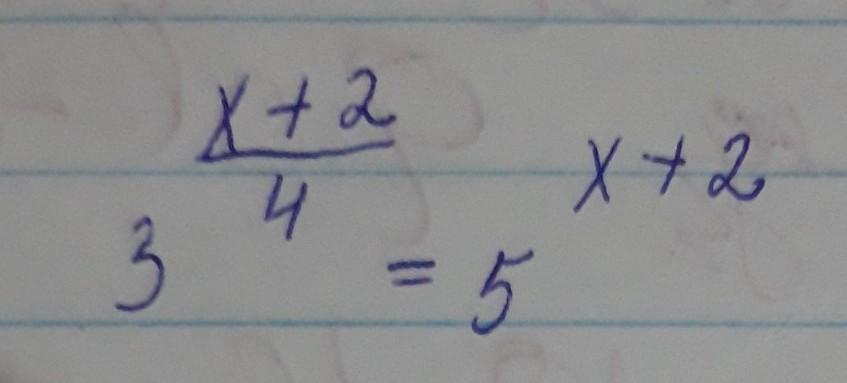 3^{\frac{x+2}{4}} = 5^{x+2}